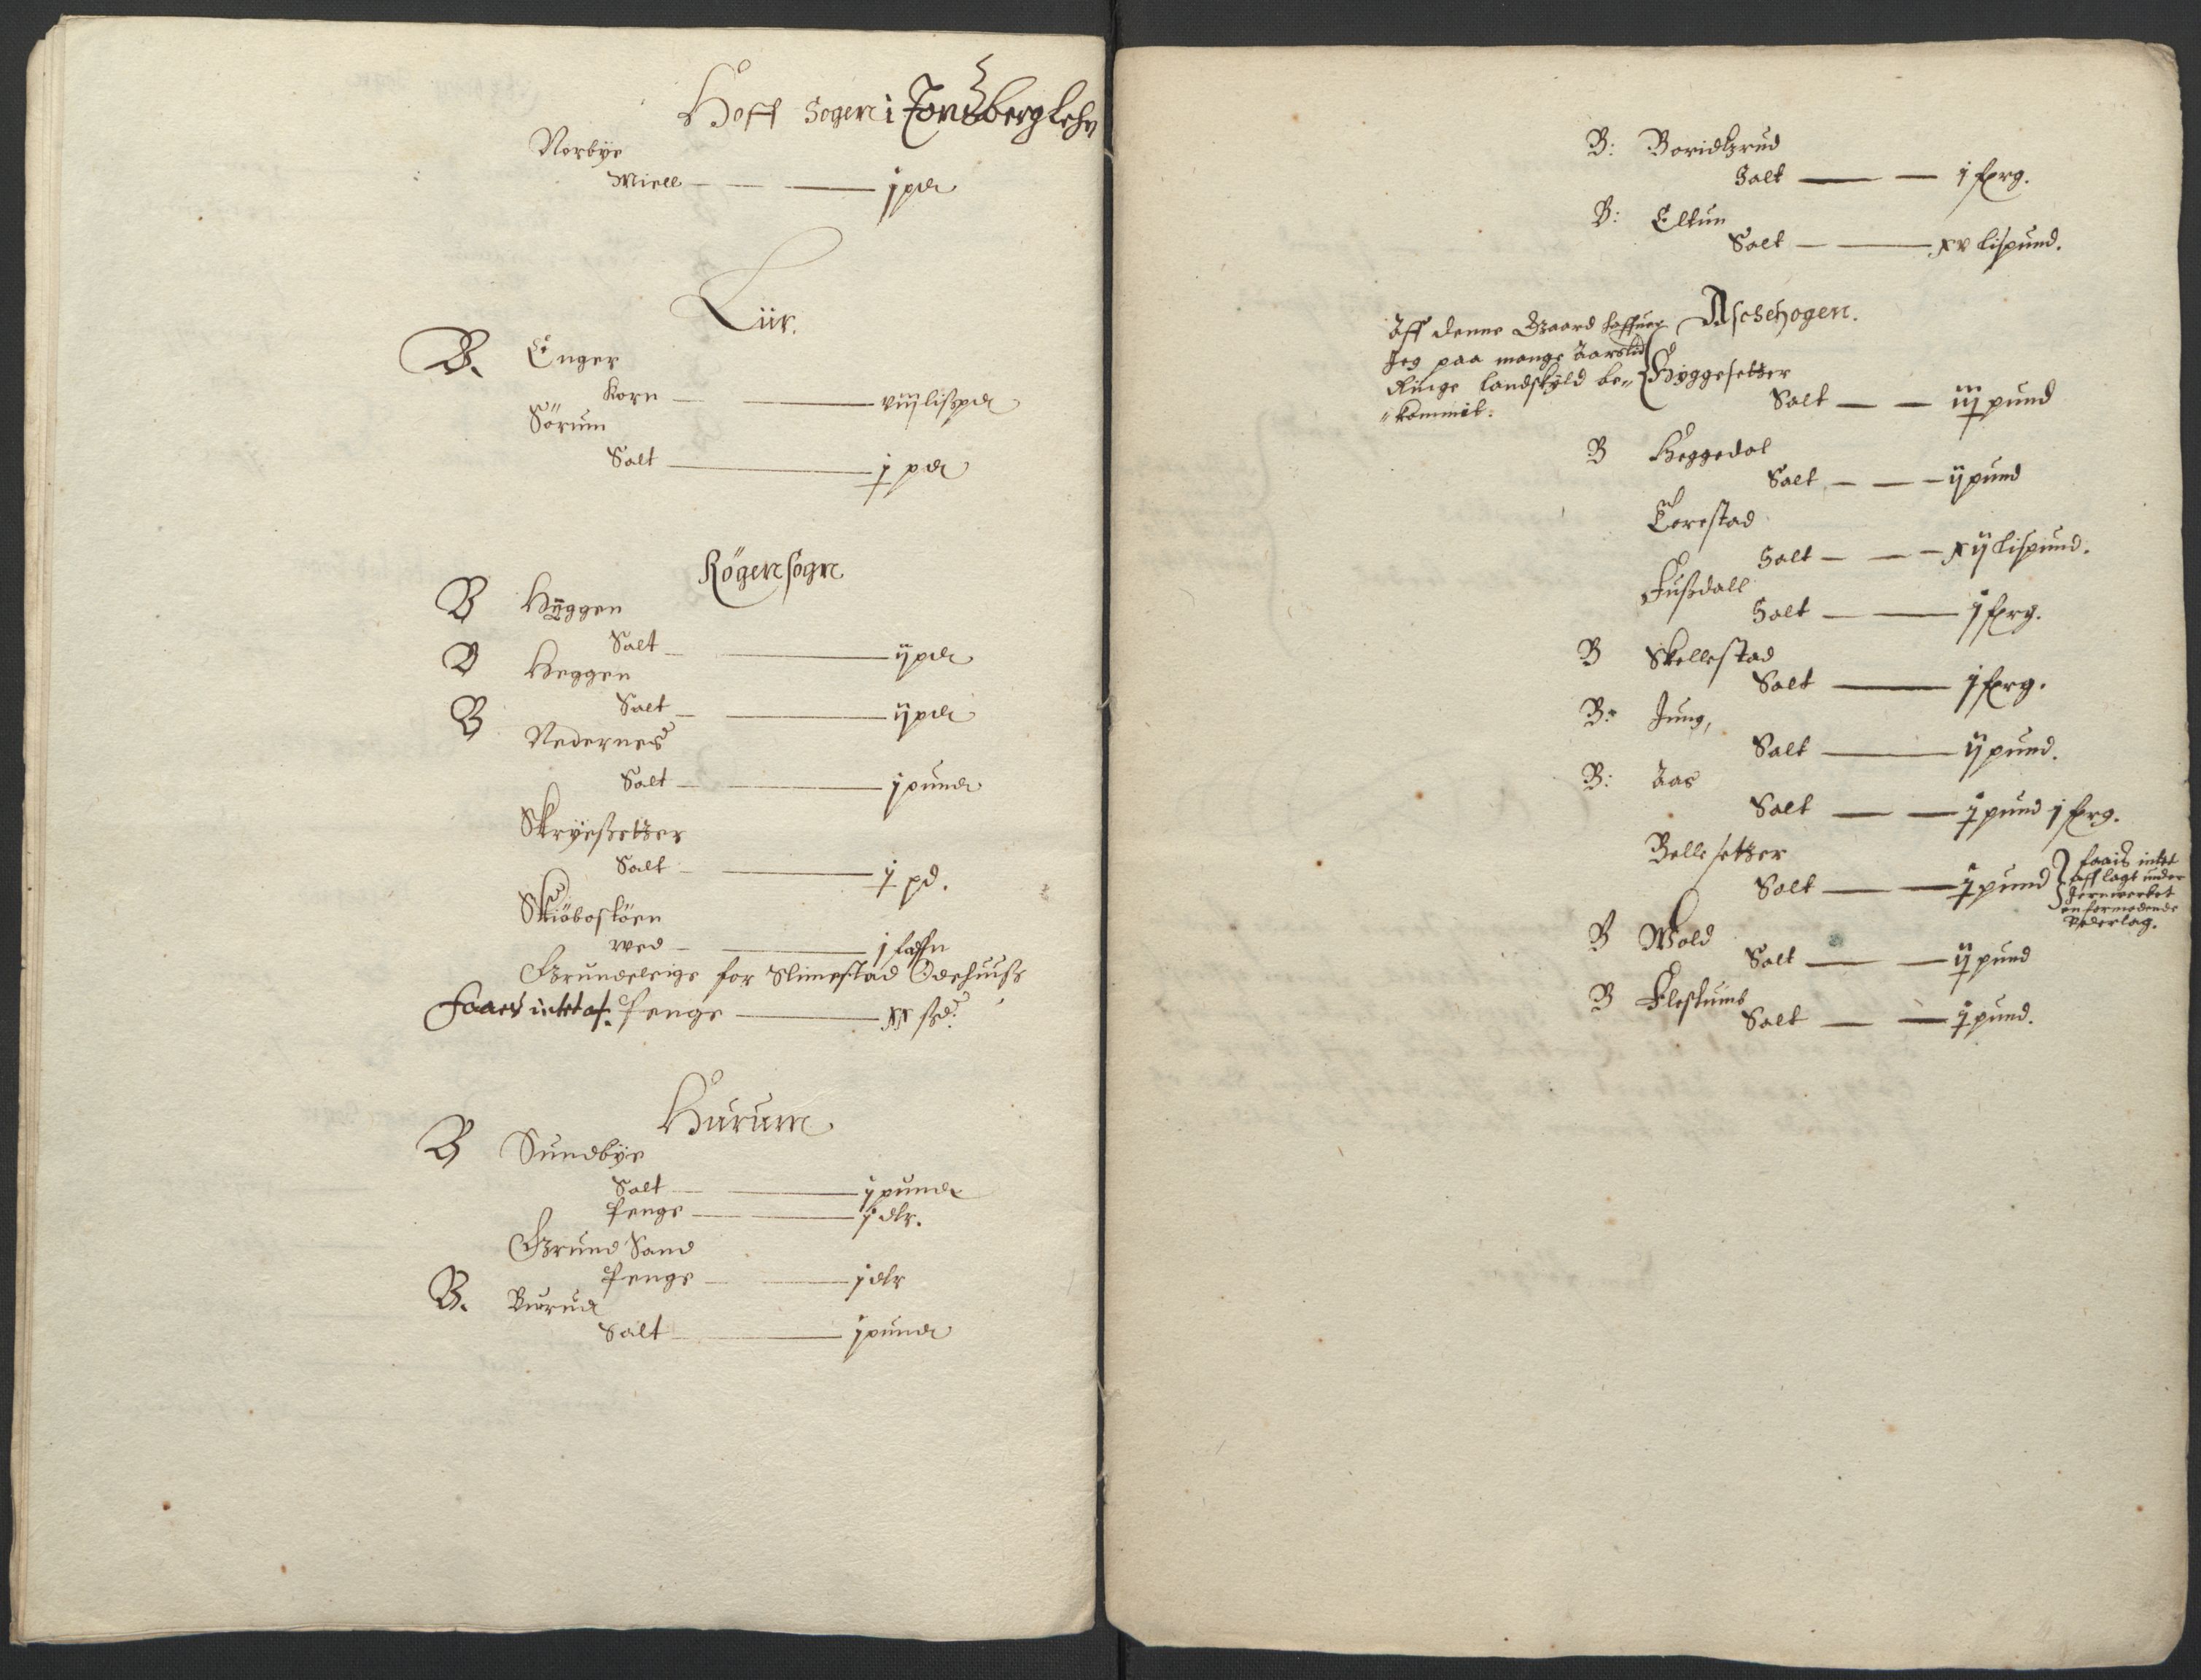 Hoff Sogen i Tonsberg Lehn
Norbÿe
Miell — j pd
Liir.
B. Enger
Korn — viij lispd
Sörum
Salt — j pd
Rögen sogn
B Hÿggen
Salt — ij pd
B Heggen
Salt — ij pd
B Nedernes
Salt — j pund
Skryesetzer
Salt — j pd.
Skiöbostöen
wed — j fafn
Grundeleige for Slimestad Ödehuusz
Faaes intet af. Penge — xx sk.
Hurum
B Sundbÿe
Salt — j pund
Penge — j dlr.
Grund Sand
Penge — j dlr
B. Burud
Salt — j pund
B: Boridtzrud
Salt — j fprg.
B: Eltun
Salt — xv Lispund.
Aschehogen.
Aff denne Gaard haffuer
Jeg paa mange Aarstid
Ringe landskÿld be-
kommit.
Hÿggesetzer
Salt — iij pund
B Heggedal
Salt — ij pund
Terestad
Salt — xij Lispund.
Fuszdall
Salt — j fprg.
B Skellestad
Salt — j fprg.
B: Jung,
Salt — ij pund.
B: Aas
Salt — j pund j fprg.
Bellesetzer
Salt — j pund
faais intet
aff lagt under
Jernwerket
en formedends
Vederlag.
B Wold
Salt — ij pund
B Fleskumb
Salt — j pund.